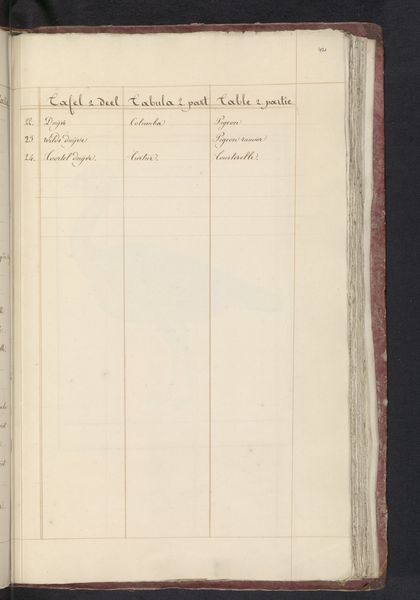 Tafel 2 deel Tabula 2 part Table 2 partie
22. Duijve Columba Pigeon
23 wilde duijve Pigeon ramier
24. Toortel duijve. Turtur. Tourterelle.